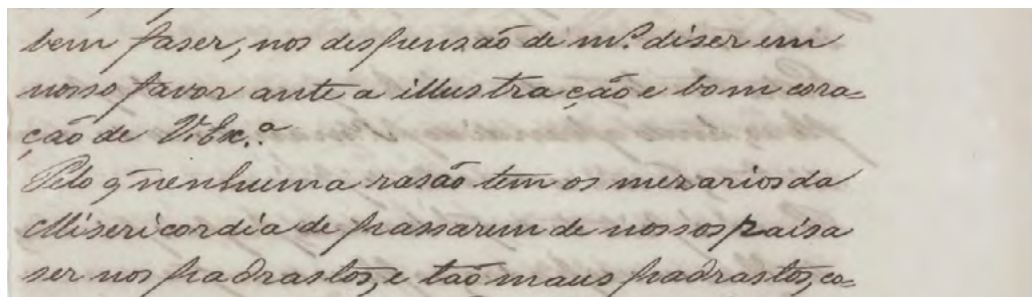 bem faser, nos despensaõ de m.ᵗᵒ diser em
nosso favor ante a illustração e bom cora=
ção de V. Ex.ª
Pelo q̃ nenhuma rasaõ tem os mezarios da
Misericordia de passarem de nossos paisa
ser nos padrastos, e taõ maus padrastos, co=